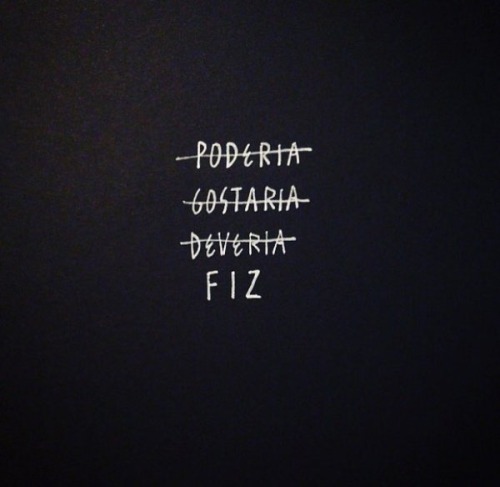 PODERIA
GOSTARIA
DEVERIA
FIZ